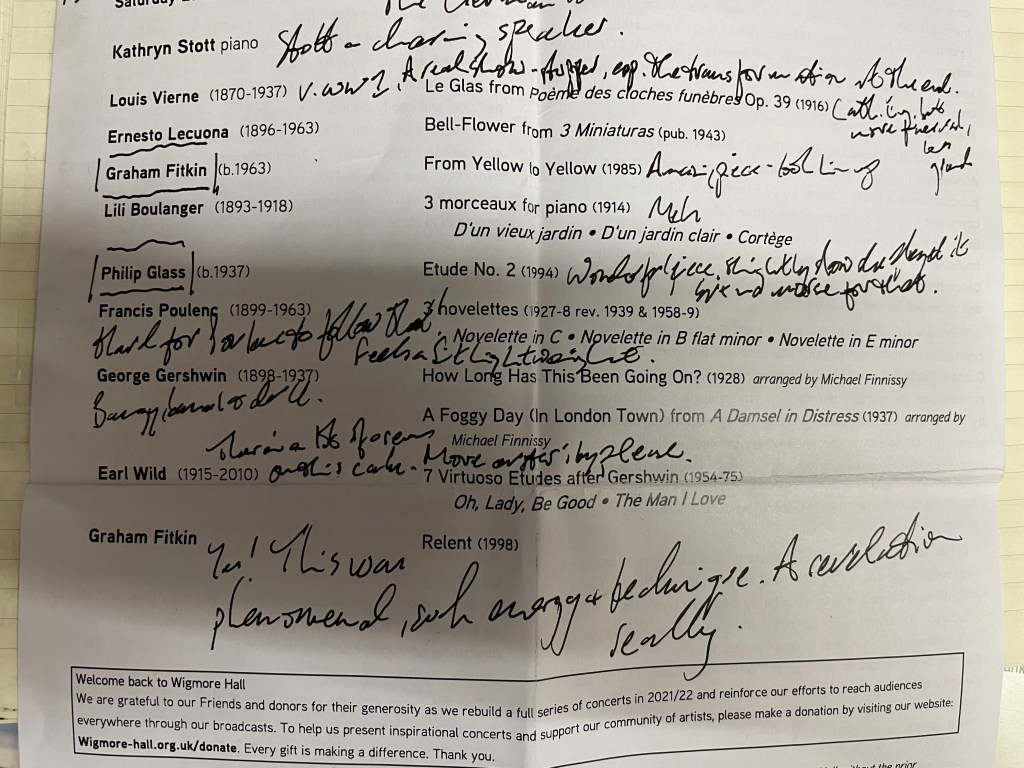 Kathryn Stott piano Stott a charming speaker.
v. WW1. A real show-stopper, esp. the transformation at the end.
Louis Vierne (1870-1937) Le Glas from Poème des cloches funèbres Op. 39 (1916)
Ernesto Lecuona (1896-1963) Bell-Flower from 3 Miniaturas (pub. 1943)
Graham Fitkin (b.1963) From Yellow to Yellow (1985) piece
Lili Boulanger (1893-1918) 3 morceaux for piano (1914) Meh
D'un vieux jardin • D'un jardin clair • Cortège
Philip Glass (b.1937) Etude No. 2 (1994) Wonderful piece, slightly slow
more for that.
Francis Poulenc (1899-1963) 3 Novelettes (1927-8 rev. 1939 & 1958-9)
Hard for Poulenc to follow that.
Novelette in C • Novelette in B flat minor • Novelette in E minor
Feels a bit lightweight.
George Gershwin (1898-1937) How Long Has This Been Going On? (1928) arranged by Michael Finnissy
A Foggy Day (In London Town) from A Damsel in Distress (1937) arranged by
Michael Finnissy
please.
Earl Wild (1915-2010) 7 Virtuoso Etudes after Gershwin (1954-75)
Oh, Lady, Be Good • The Man I Love
Graham Fitkin Relent (1998)
Yes! This was
phenomenal, such energy & technique. A revelation
really.
Welcome back to Wigmore Hall
We are grateful to our Friends and donors for their generosity as we rebuild a full series of concerts in 2021/22 and reinforce our efforts to reach audiences
everywhere through our broadcasts. To help us present inspirational concerts and support our community of artists, please make a donation by visiting our website:
Wigmore-hall.org.uk/donate. Every gift is making a difference. Thank you.